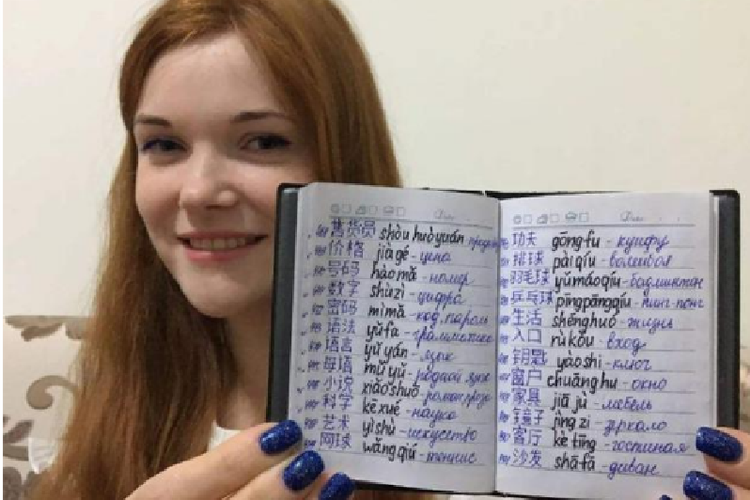 售货员 shòu huòyuán
价格 jiàgé - цена
号码 hàomǎ - номер
数字 shùzì - цифра
密码 mìmǎ - код, пароль
语法 yǔfa - грамматика
语言 yǔ yán - язык
母语 mǔ yǔ - родной язык
小说 xiǎoshuō - роман, проза
科学 kēxué - наука
艺术 yìshù - искусство
网球 wǎng qiú - теннис
功夫 gōngfu - кунгфу
排球 páiqíu - волейбол
羽毛球 yǔmáoqíu - бадминтон
乒乓球 pīngpāngqíu - пинг-понг
生活 shēnghuó - жизнь
入口 rùkǒu - вход
钥匙 yàoshi - ключ
窗户 chuānghu - окно
家具 jiā jù - мебель
镜子 jìng zi - зеркало
客厅 kètīng - гостиная
沙发 shāfā - диван